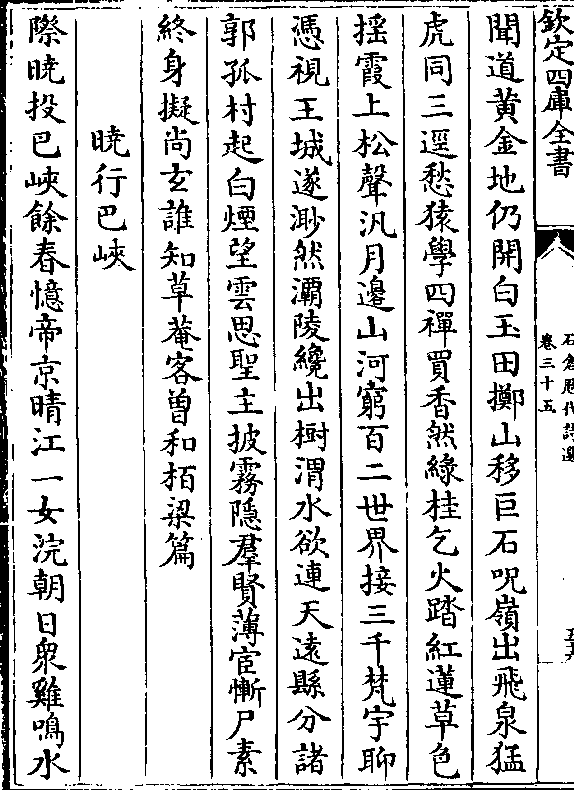 欽定四庫全書
石倉歷代詩選
卷三十五
聞道黃金地仍開白玉田擲山移巨石呪嶺出飛泉猛
虎同三逕愁猿學四禪買香然綠桂乞火踏紅蓮草色
揺霞上松聲汎月邊山河窮百二世界接三千梵宇聊
憑視王城遂渺然灞陵纔出樹渭水欲連天逺縣分諸
郭孤村起白煙望雲思聖主披霧隱羣賢薄宦慚尸素
終身擬尚玄誰知草菴客曾和栢梁篇
曉行巴峽
際曉投巴峽餘春憶帝京晴江一女浣朝日衆雞鳴水